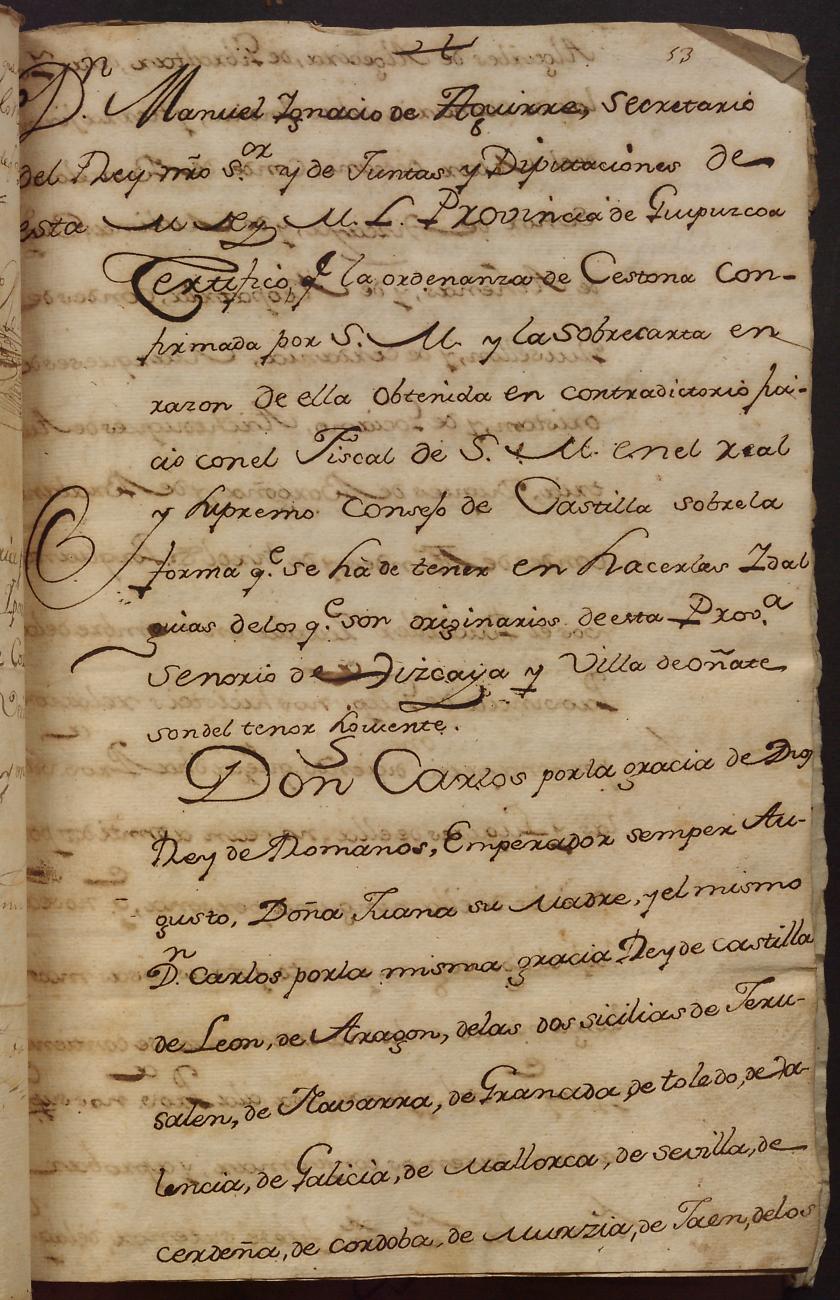 53
Dn. Manuel Ignacio de Aguirre, Secretario
del Rey nr̃o s.or y de Juntas y Diputaciones de
esta M. N. y M. L. Provincia de Guipuzcoa
Certifico q̃ la ordenanza de Cestona con-
firmada por S. M. y la sobrecarta en
razon de ella obtenida en contradictorio jui-
cio con el Fiscal de S. M. en el real
y supremo Consejo de Castilla sobre la
forma q.e se hà de tener en hacer las Idal
guias de los q.e son originarios de esta Prov.a
Senorio de Vizcaya y Villa de oñate
son del tenor siguiente.
Don Carlos por la gracia de Dios
Rey de Romanos, Emperador semper Au-
gusto, Doña Juana su Madre, y el mismo
Dn. Carlos por la misma gracia Rey de Castilla
de Leon, de Aragon, de las dos sicilias de Jeru-
salen, de Navarra, de Granada, de toledo, de Va-
lencia, de Galicia, de Mallorca, de sevilla, de
cerdeña, de cordoba, de Murzia, de Jaen, de los